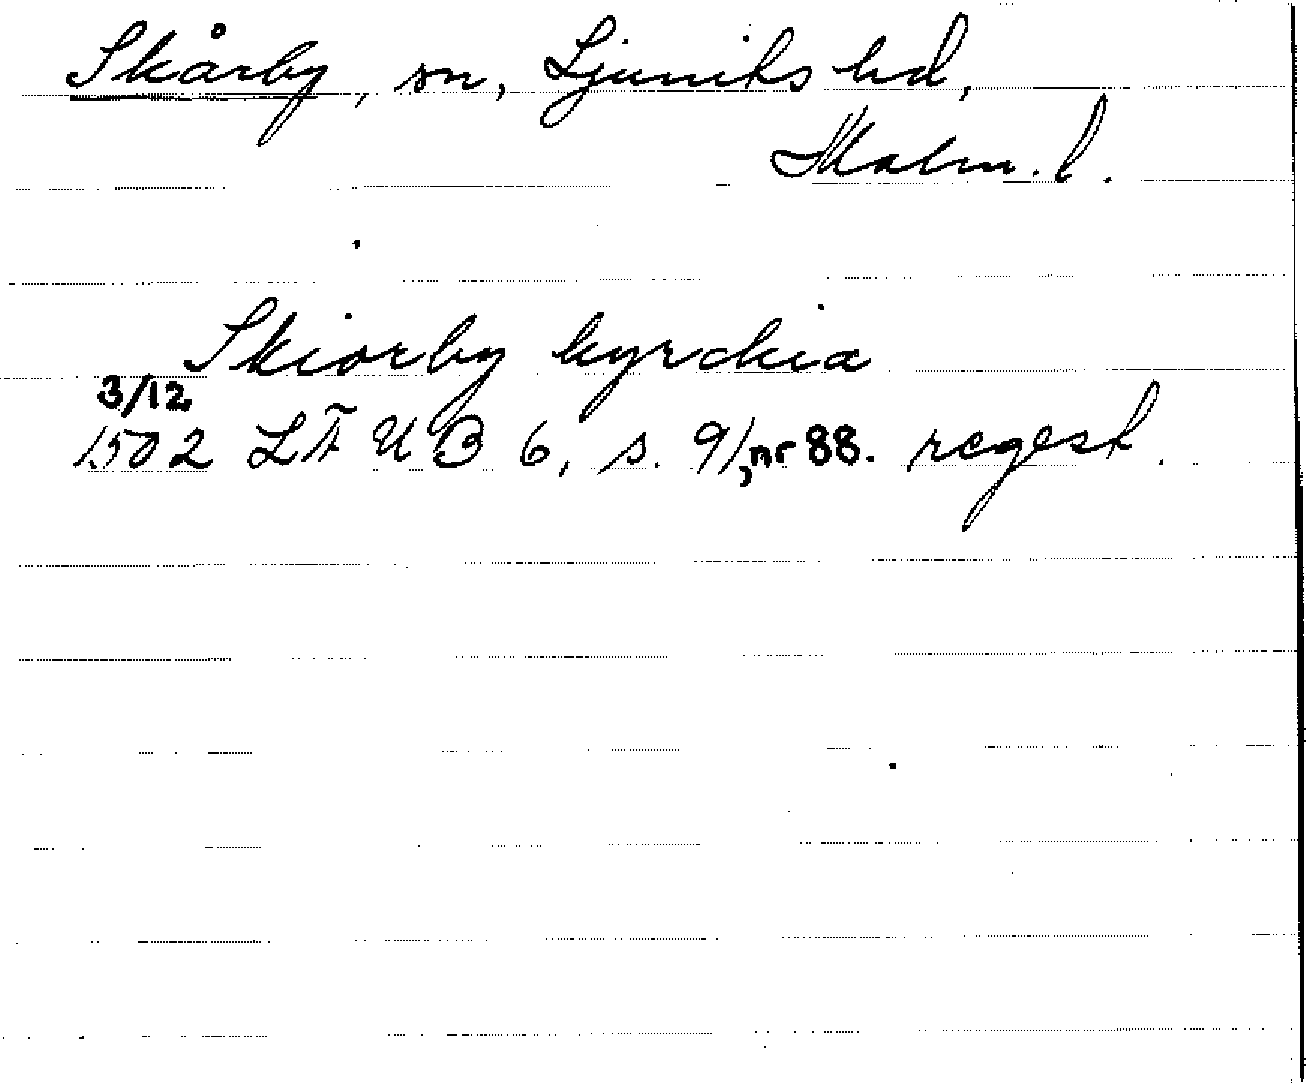 Skårby, sn, Ljunits hd,
Malm. l.
Skiorby kyrckia
3/12
1502 LÄUB 6, s. 91, nr 88. regest.